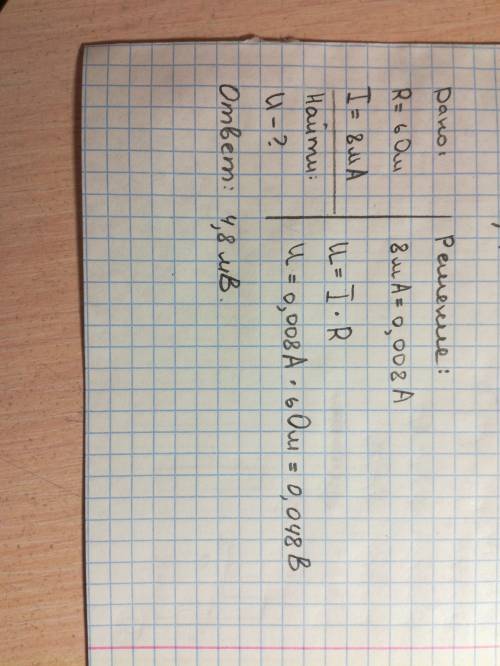 Дано:
R = 6 Ом
I = 8 мА
Найти:
U - ?
Решение:
8 мА = 0,008 А
U = I · R
U = 0,008 А · 6 Ом = 0,048 В
Ответ: 4,8 мВ.